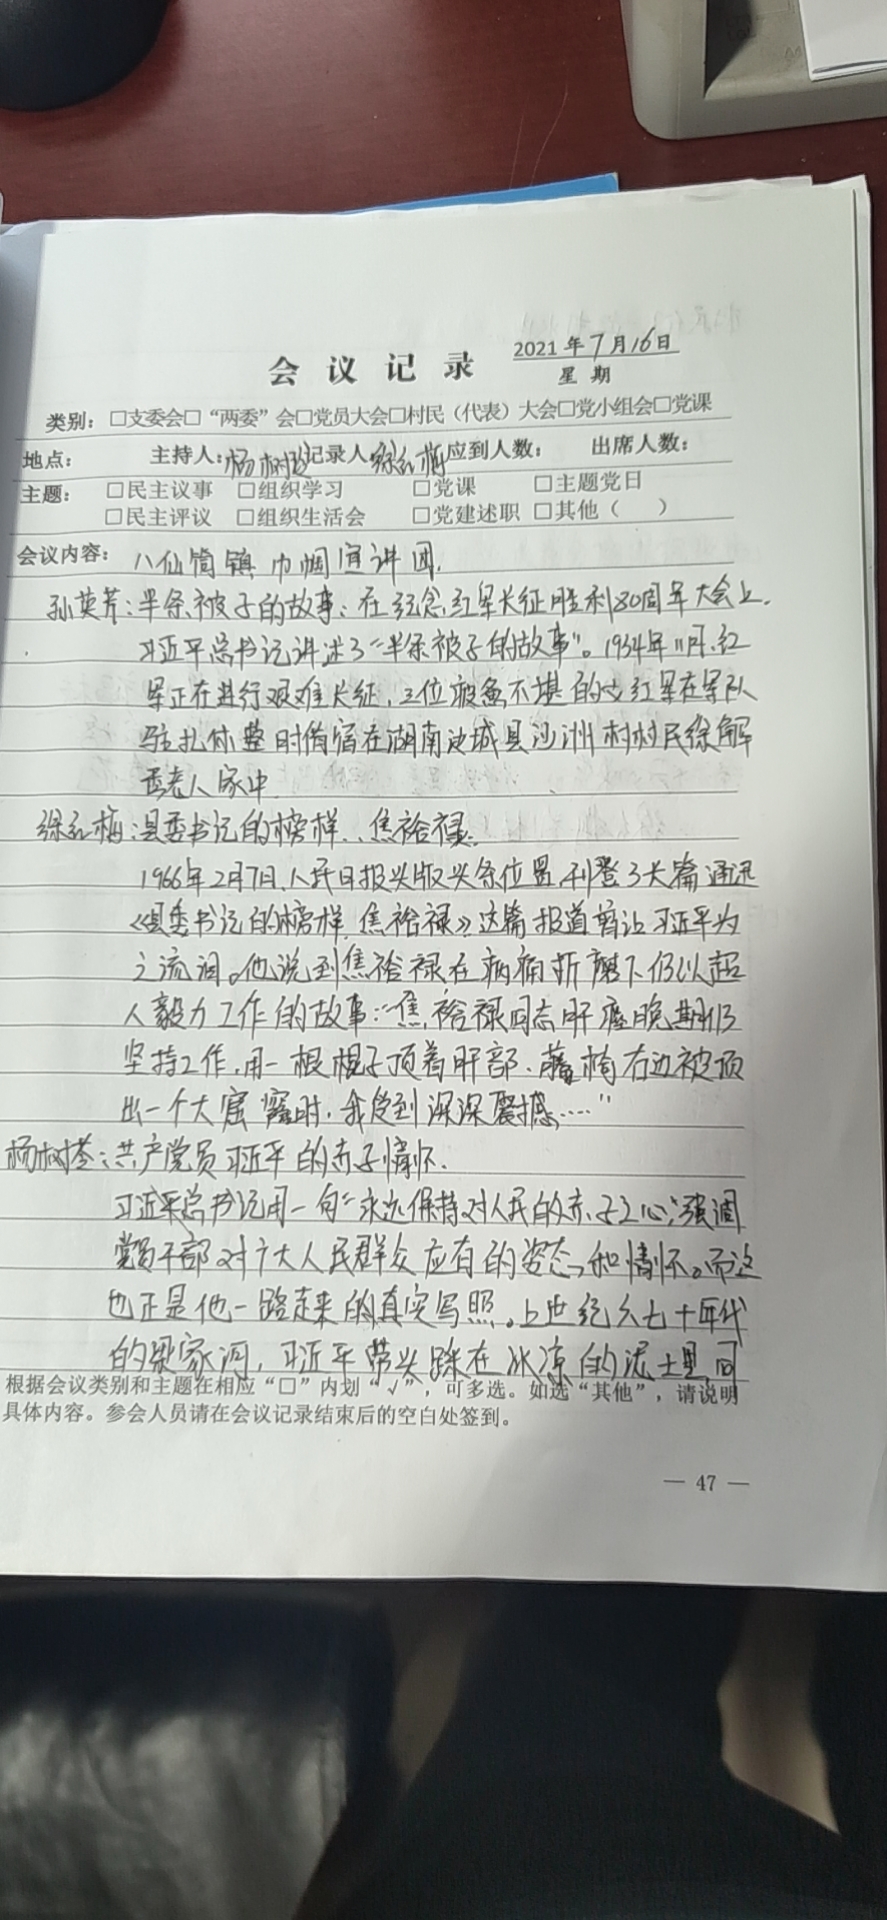 会议记录 2021年7月16日
星期
类别：□支委会□“两委”会□党员大会□村民（代表）大会□党小组会□党课
地点： 主持人：杨树 记录人 徐红梅 应到人数： 出席人数：
主题： □民主议事 □组织学习 □党课 □主题党日
□民主评议 □组织生活会 □党建述职 □其他（ ）
会议内容：八仙筒镇巾帼宣讲团.
孙英芳：半条被子的故事：在纪念红军长征胜利80周年大会上.
习近平总书记讲述了“半条被子的故事”。1934年11月,红
军正在进行艰难长征，三位疲惫不堪的女红军在军队
驻扎休整时借宿在湖南汝城县沙洲村村民徐解
秀老人家中.
徐红梅：县委书记的榜样..焦裕禄.
1966年2月7日.人民日报头版头条位置,刊登了长篇通讯
《县委书记的榜样 焦裕禄》这篇报道曾让习近平为
之流泪。他说到焦裕禄在病痛折磨下仍以超
人毅力工作的故事：“焦裕禄同志肝癌晚期仍
坚持工作,用一根棍子顶着肝部.藤椅右边被顶
出一个大窟窿时.我受到深深震撼……”
杨树：共产党员习近平的赤子情怀.
习近平总书记用一句“永远保持对人民的赤子之心”,强调
党员干部对广大人民群众应有的姿态和情怀。而这
也正是他一路走来的真实写照。上世纪六七十年代
的梁家河，习近平带头踩在冰凉的泥土里,同
根据会议类别和主题在相应“□”内划“√”，可多选。如选“其他”，请说明
具体内容。参会人员请在会议记录结束后的空白处签到。
— 47 —